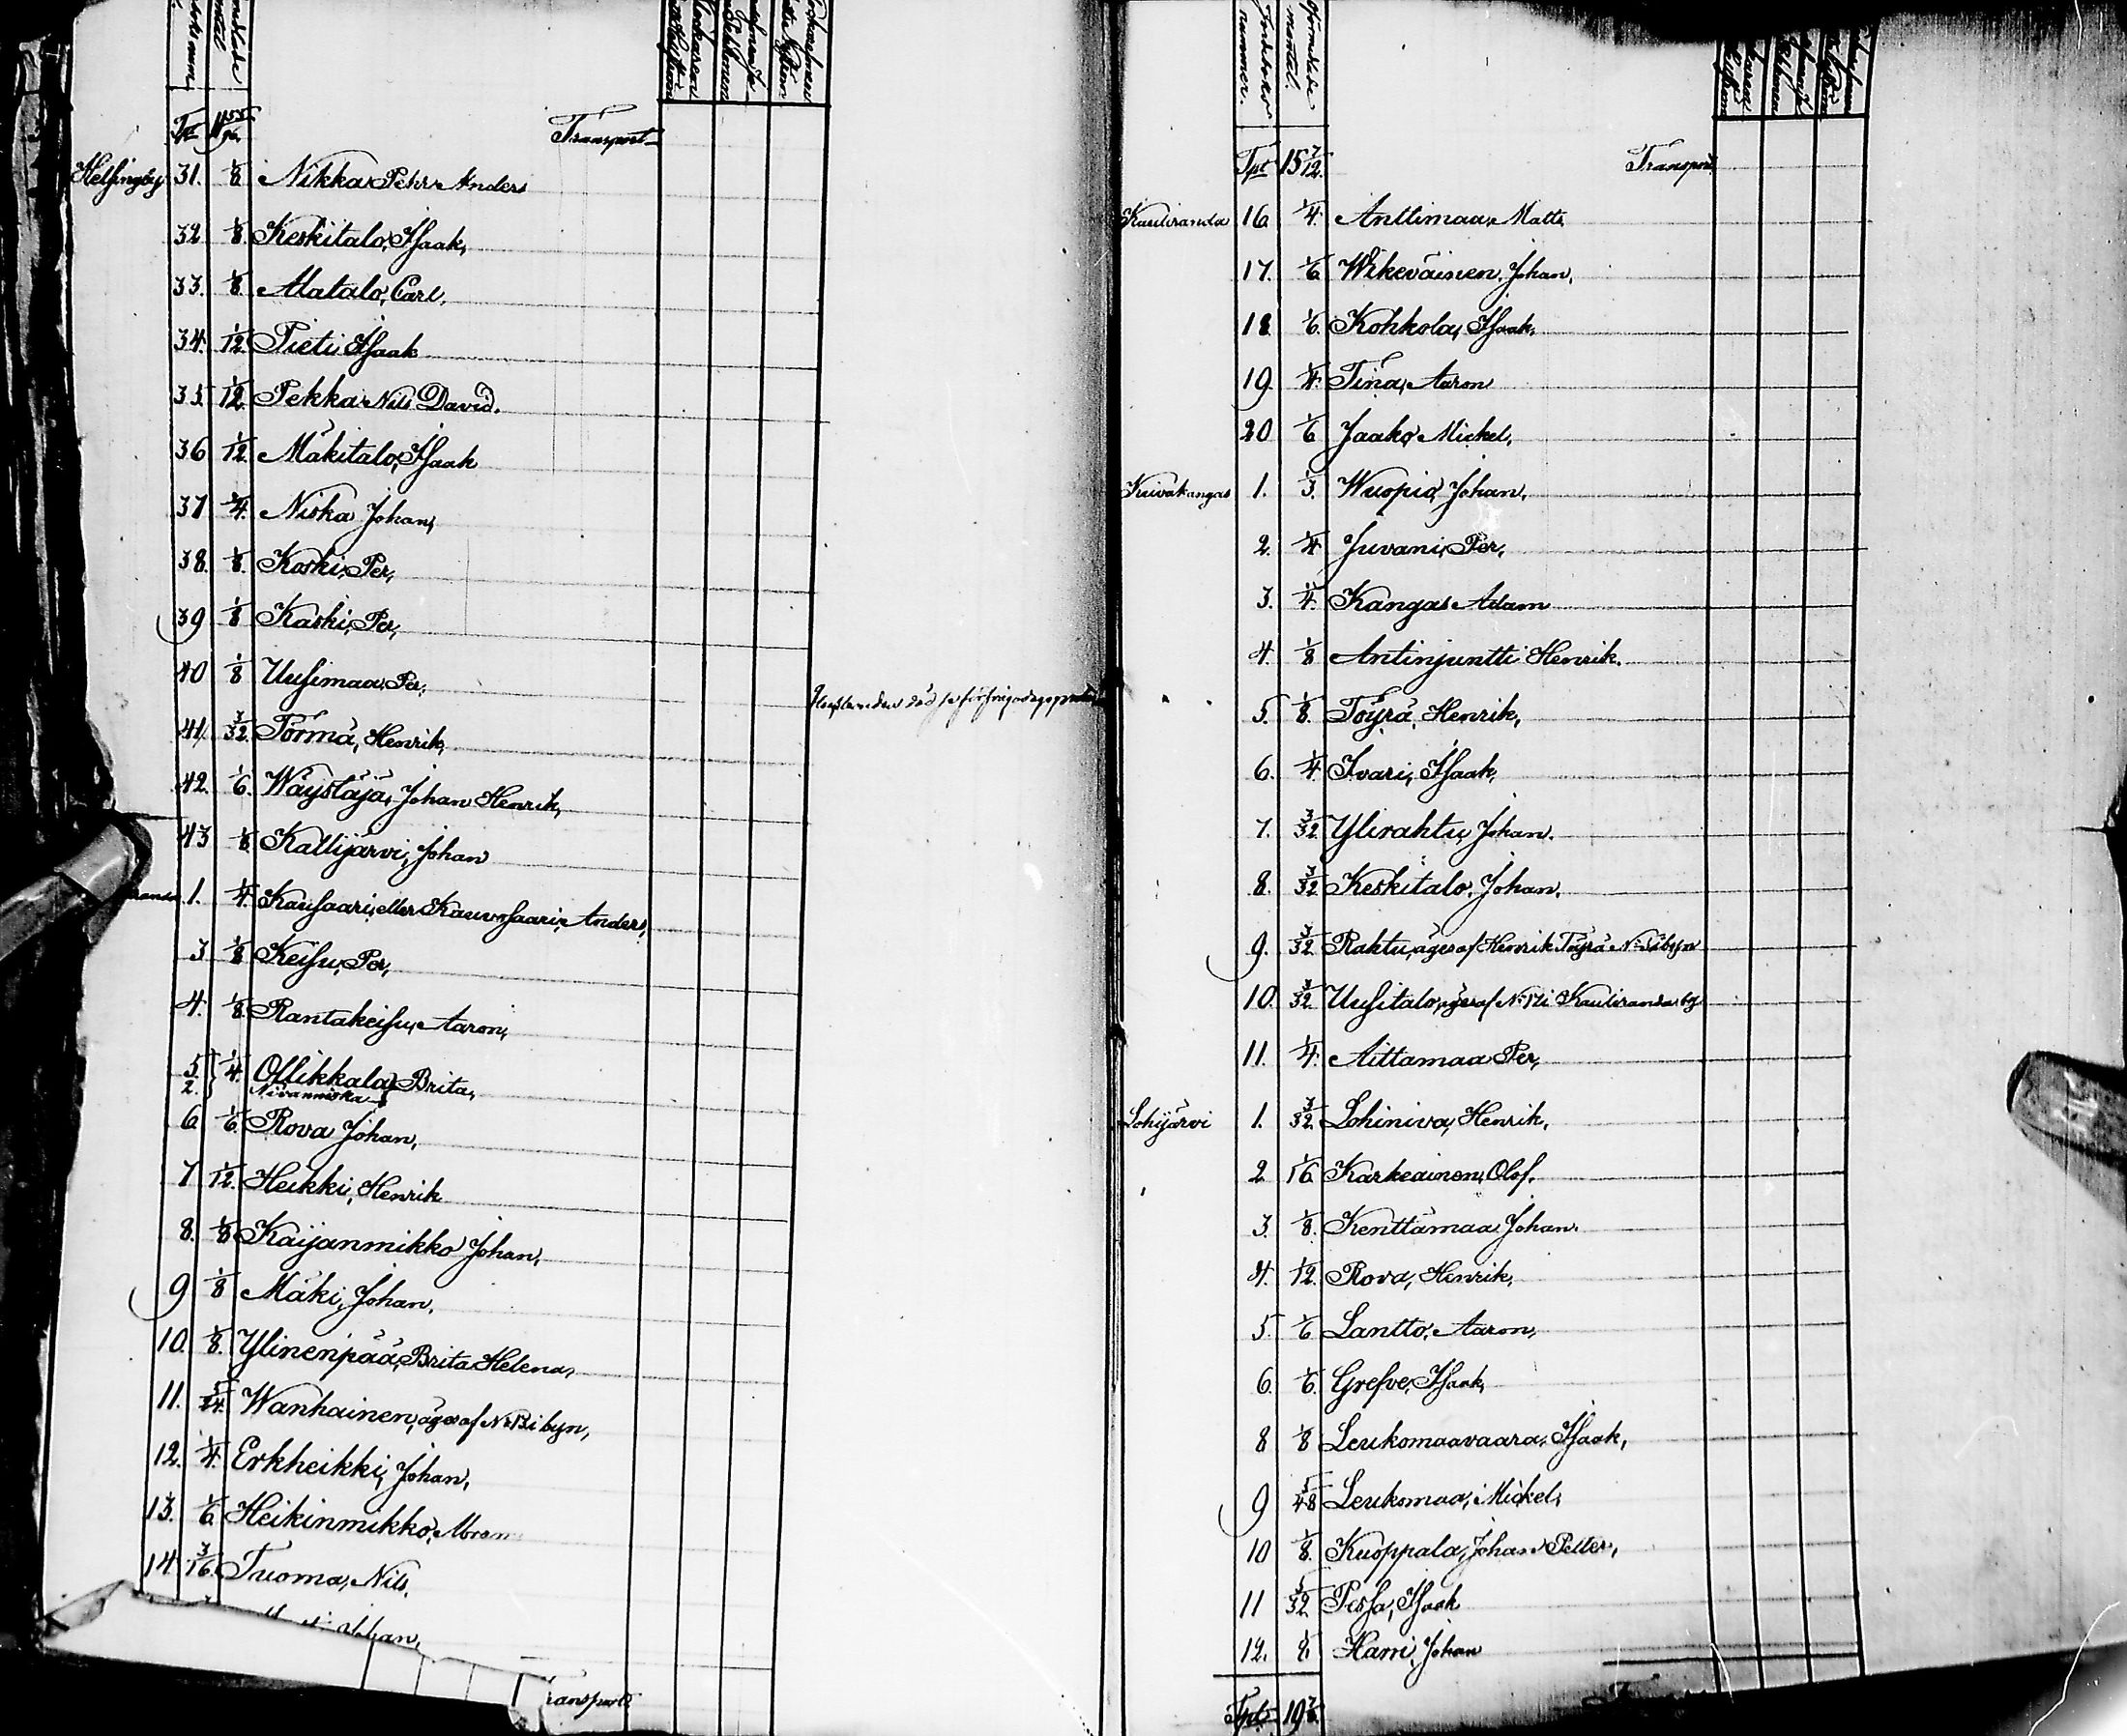 Transport
Helsingby 31. 1/8 Nikka Pehr Anders
32 1/8 Keskitalo, Isaak,
33. 1/8 Alatalo, Carl,
34. 1/12 Pieti Isaak
35 1/12 Pekka Nils David.
36 1/12 Mäkitalo, Isaak
37 1/4 Niska Johan,
38. 1/8 Koski, Per,
39 1/8 Kaski, Per,
40 1/8 Uusimaa, Per,
41 3/32 Törmä, Henrik,
42. 1/6 Wäystäjä, Johan Henrik,
43 1/8 Kallijärvi, Johan
1. 1/4 Kausaari, eller Kauvosaari, Anders,
3 1/8 Keisu, Per,
4. 1/8 Rantakeisu, Aaron,
5. 2. 1/4 Ollikkala Brita,
Nivanniska
6 1/6 Rova Johan,
7 1/12 Heikki, Henrik
8. 1/8 Kaijanmikko Johan,
9 1/8 Mäki, Johan,
10. 1/8 Ylinenpää, Brita Helena,
11. 5/24 Wanhainen, äges af No 13 i byn,
12. 1/4 Erkheikki, Johan,
13. 1/6 Heikinmikko, Abram
14 3/16 Tuoma, Nils,
Johan,
Transport
Förhborks nummer. mantal.
Tpt 15 7/12. Transport
Kauliranda 16 1/4 Anttimaa, Matts
17. 1/6 Wikeväinen, Johan,
18 1/6 Kohkola, Isaak,
19 1/4 Tina, Aaron
20 1/6 Jaako, Mickel,
Kuivakangas 1. 1/3 Wuopio, Johan,
2. 1/4 Juvani, Per,
3. 1/4 Kangas Adam
4. 1/8 Antinjuntti Henrik.
5. 1/8 Töyrä Henrik,
6. 1/4 Ivari, Isaak,
7. 3/32 Ylirahtu, Johan.
8. 3/32 Keskitalo, Johan.
9. 3/32 Rahtu, äges af Henrik Töyrä No 5 i byn
10. 3/32 Uusitalo, äges af No 17 i Kauliranda by
11. 1/4 Aittamaa Per,
Lohijärvi 1. 3/32 Lohiniva, Henrik,
2 1/16 Karkeainen, Olof.
3. 1/8 Kenttämaa Johan.
4. 1/12 Rova, Henrik,
5. 1/6 Lantto, Aaron,
6 1/6 Grefve, Isaak,
8 1/8 Leukomaavaara, Isaak,
9 5/48 Leukomaa, Mickel,
10 1/8 Kuoppala, Johan Petter,
11 5/32 Pessa, Isaak
12. 1/8 Harri, Johan
Tpt 19 7/8